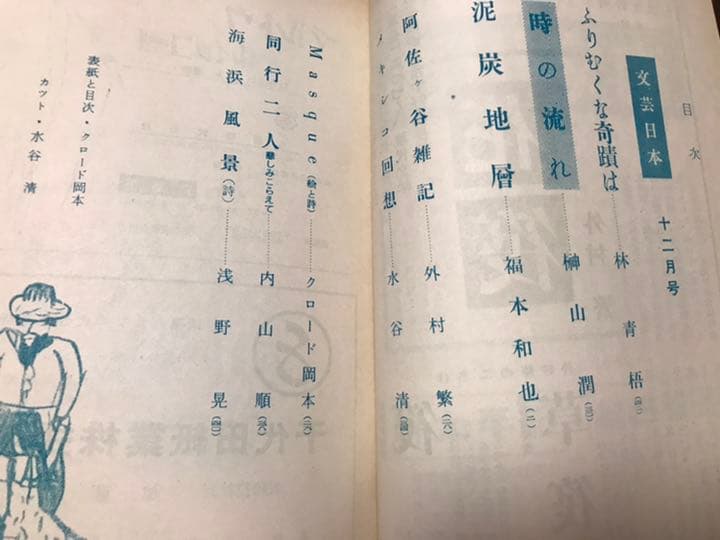 目次
文芸日本 十二月号
ふりむくな奇蹟は……林青梧
時の流れ……榊山潤
泥炭地層……福本和也(二)
阿佐ヶ谷雑記……外村繁
メキシコ回想……水谷清
Masque(絵と詩)……クロード岡本
同行二人 悲しみこらえて……内山順
海浜風景(詩)……浅野晃
表紙と目次・クロード岡本
カット・水谷清